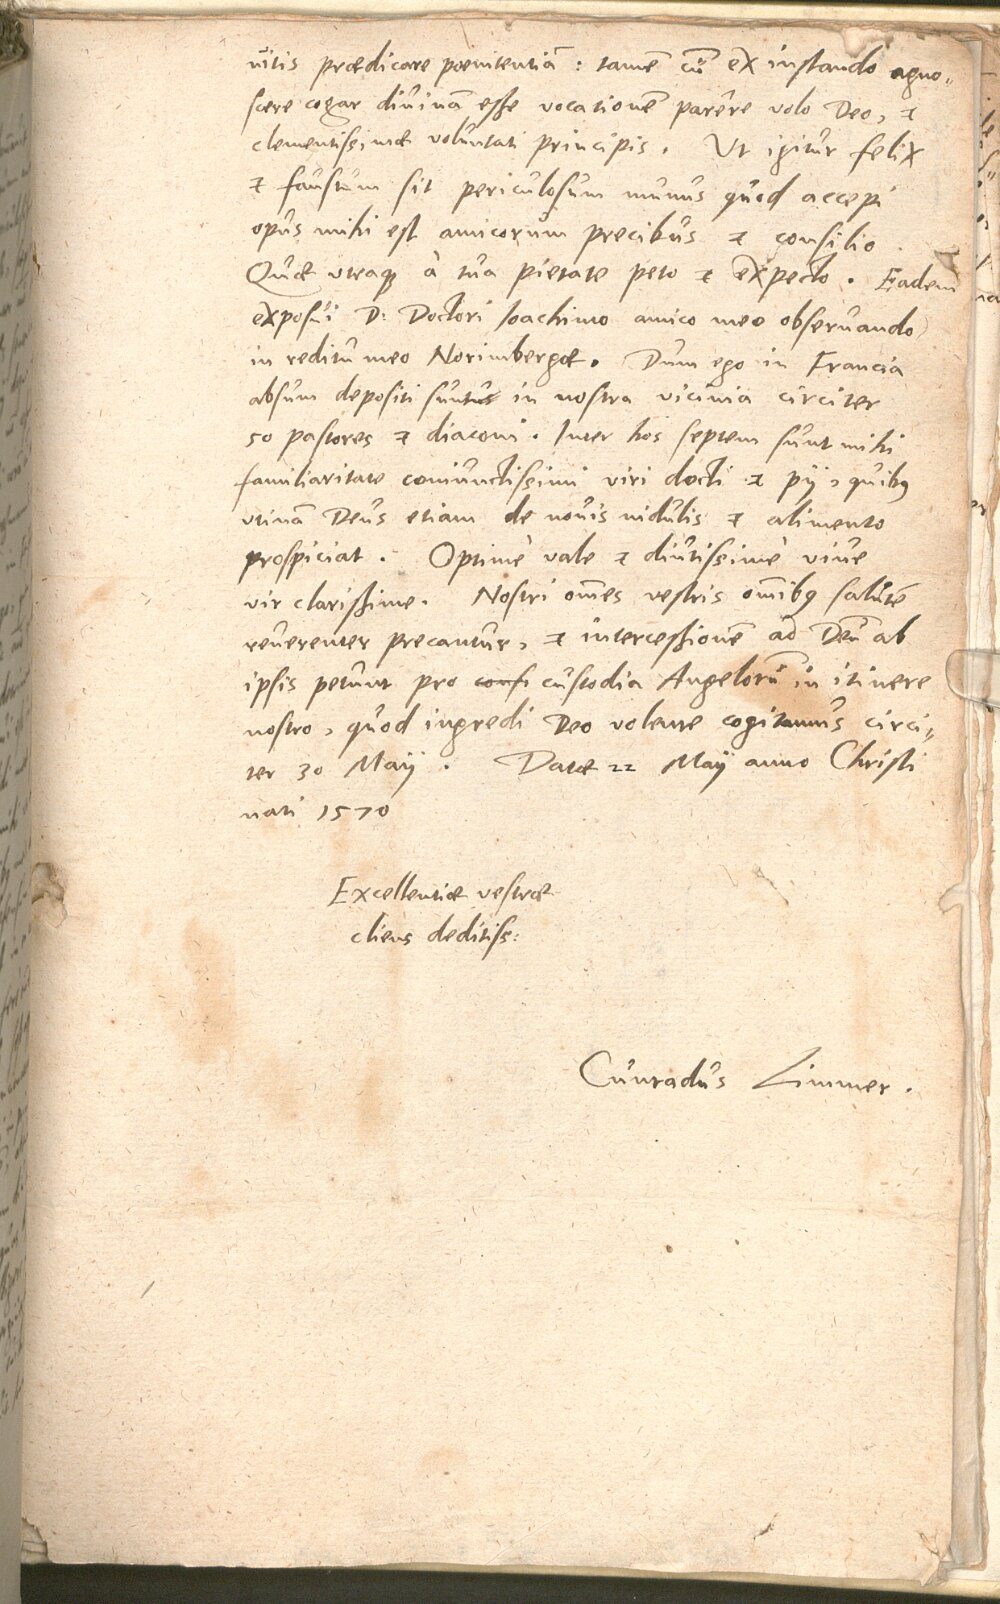 uitis prædicare poenitentiā: tamē cū ex instando agno„
scere cogar diuinā esse vocationē parere volo Deo, &
clementissimæ voluntati principis. Ut igitur felix
& faustum sit periculosum munus quod accepi
opus mihi est amicorum precibus & consilio.
Quæ vtraqȝ à tua pietate peto & expecto. Eadem
exposui D: Doctori Ioachimo amico meo obseruando
in reditu meo Norimbergæ. Dum ego in Francia
absum depositi sunt in nostra vicinia circiter
50 pastores & diaconi. Inter hos septem sunt mihi
familiaritate coniunctissimi viri docti & pij, quibȝ
vtinā Deus etiam de nouis nidulis & alimento
prospiciat. Optimè vale & diutissimè viue
vir clarissime. Nostri om̄es vestris om̄ibȝ salutē
reuerenter precantur, & intercessionē ad Deū ab
ipsis petunt pro confi custodia Angelorū in itinere
nostro, quod ingredi Deo volente cogitamus circi„
ter 30 Maij. Datæ 22 Maij anno Christi
nati 1570
Excellentiæ vestræ
cliens deditiss:
Cunradus Zimmer.